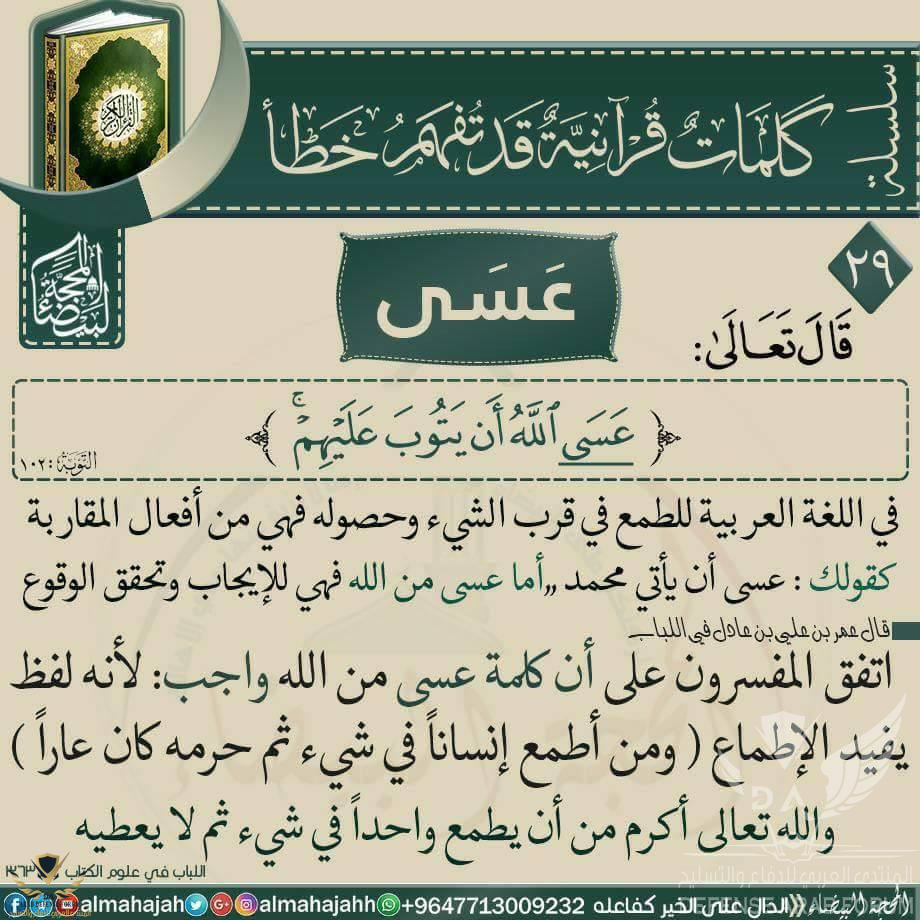 سلسلة
كَلِمَاتٌ قُرْآنِيَّةٌ قَدْ تُفْهَمُ خَطَأً
القرآن الكريم
المحجة البيضاء
٢٩
عَسَى
قَالَ تَعَالَىٰ:
﴿ عَسَى ٱللَّهُ أَن يَتُوبَ عَلَيْهِمْۚ ﴾
التوبة: ١٠٢
في اللغة العربية للطمع في قرب الشيء وحصوله فهي من أفعال المقاربة
كقولك : عسى أن يأتي محمد ,,أما عسى من الله فهي للإيجاب وتحقق الوقوع
قال عمر بن علي بن عادل في اللباب
اتفق المفسرون على أن كلمة عسى من الله واجب: لأنه لفظ
يفيد الإطماع ( ومن أطمع إنساناً في شيء ثم حرمه كان عاراً )
والله تعالى أكرم من أن يطمع واحداً في شيء ثم لا يعطيه
اللباب في علوم الكتاب
المنتدى العربي للدفاع والتسليح
DEFENSE ARAB FORUM
المحجة البيضاء الدال على الخير كفاعله +9647713009232 almahajahh almahajah